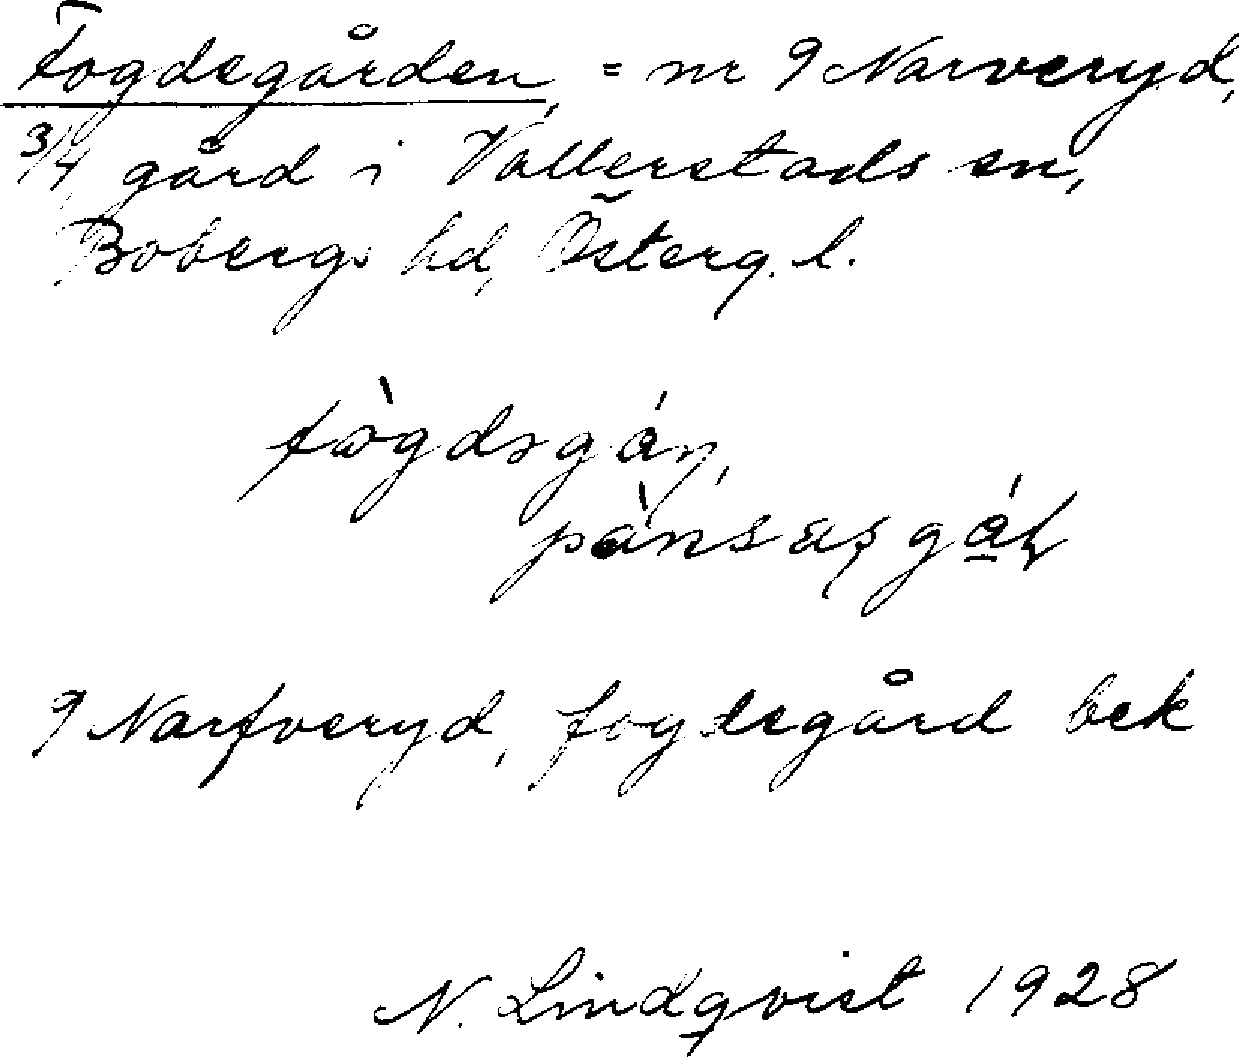 Fogdegården, = nr 9 Narveryd,
3/4 gård i Vallerstads sn,
Bobergs hd, Österg. l.
9 Narfveryd, fogdegård bek
N. Lindqvist 1928